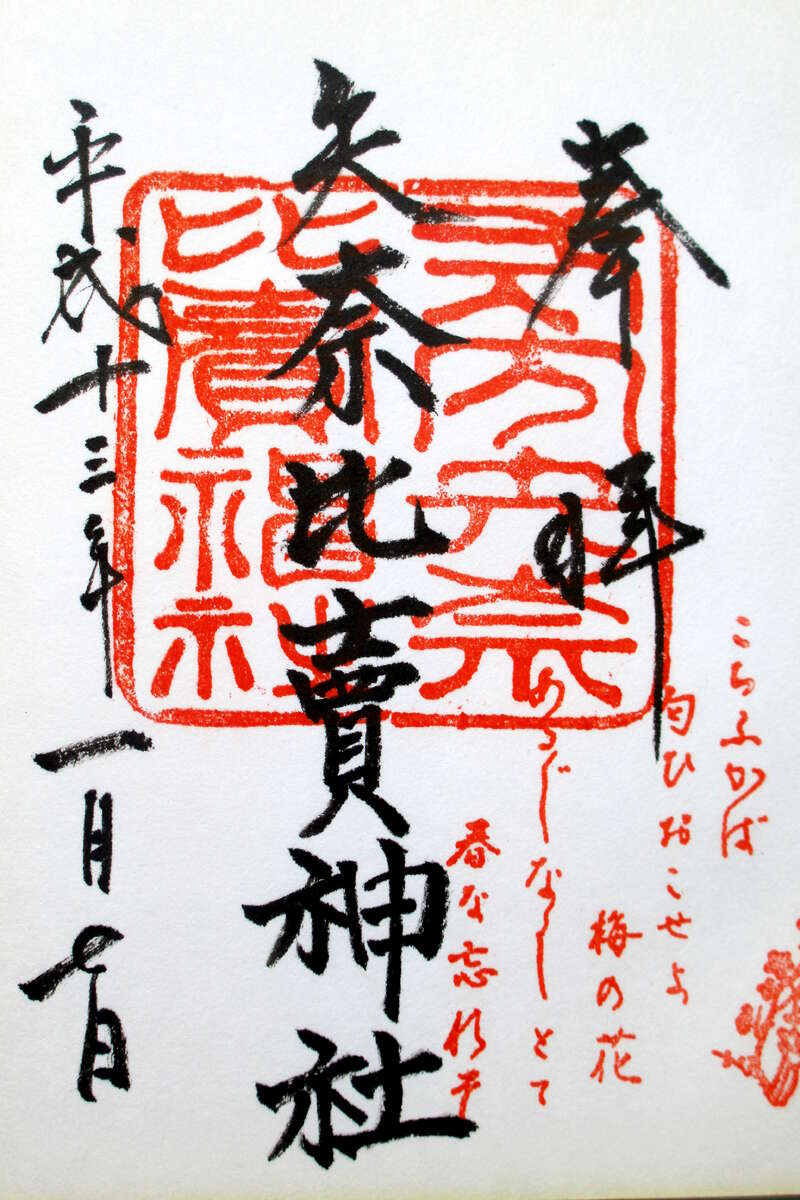 奉拝
こちふかば
匂ひおこせよ
梅の花
あるじなしとて
春な忘れそ
矢奈比賣神社
平成十三年一月七日